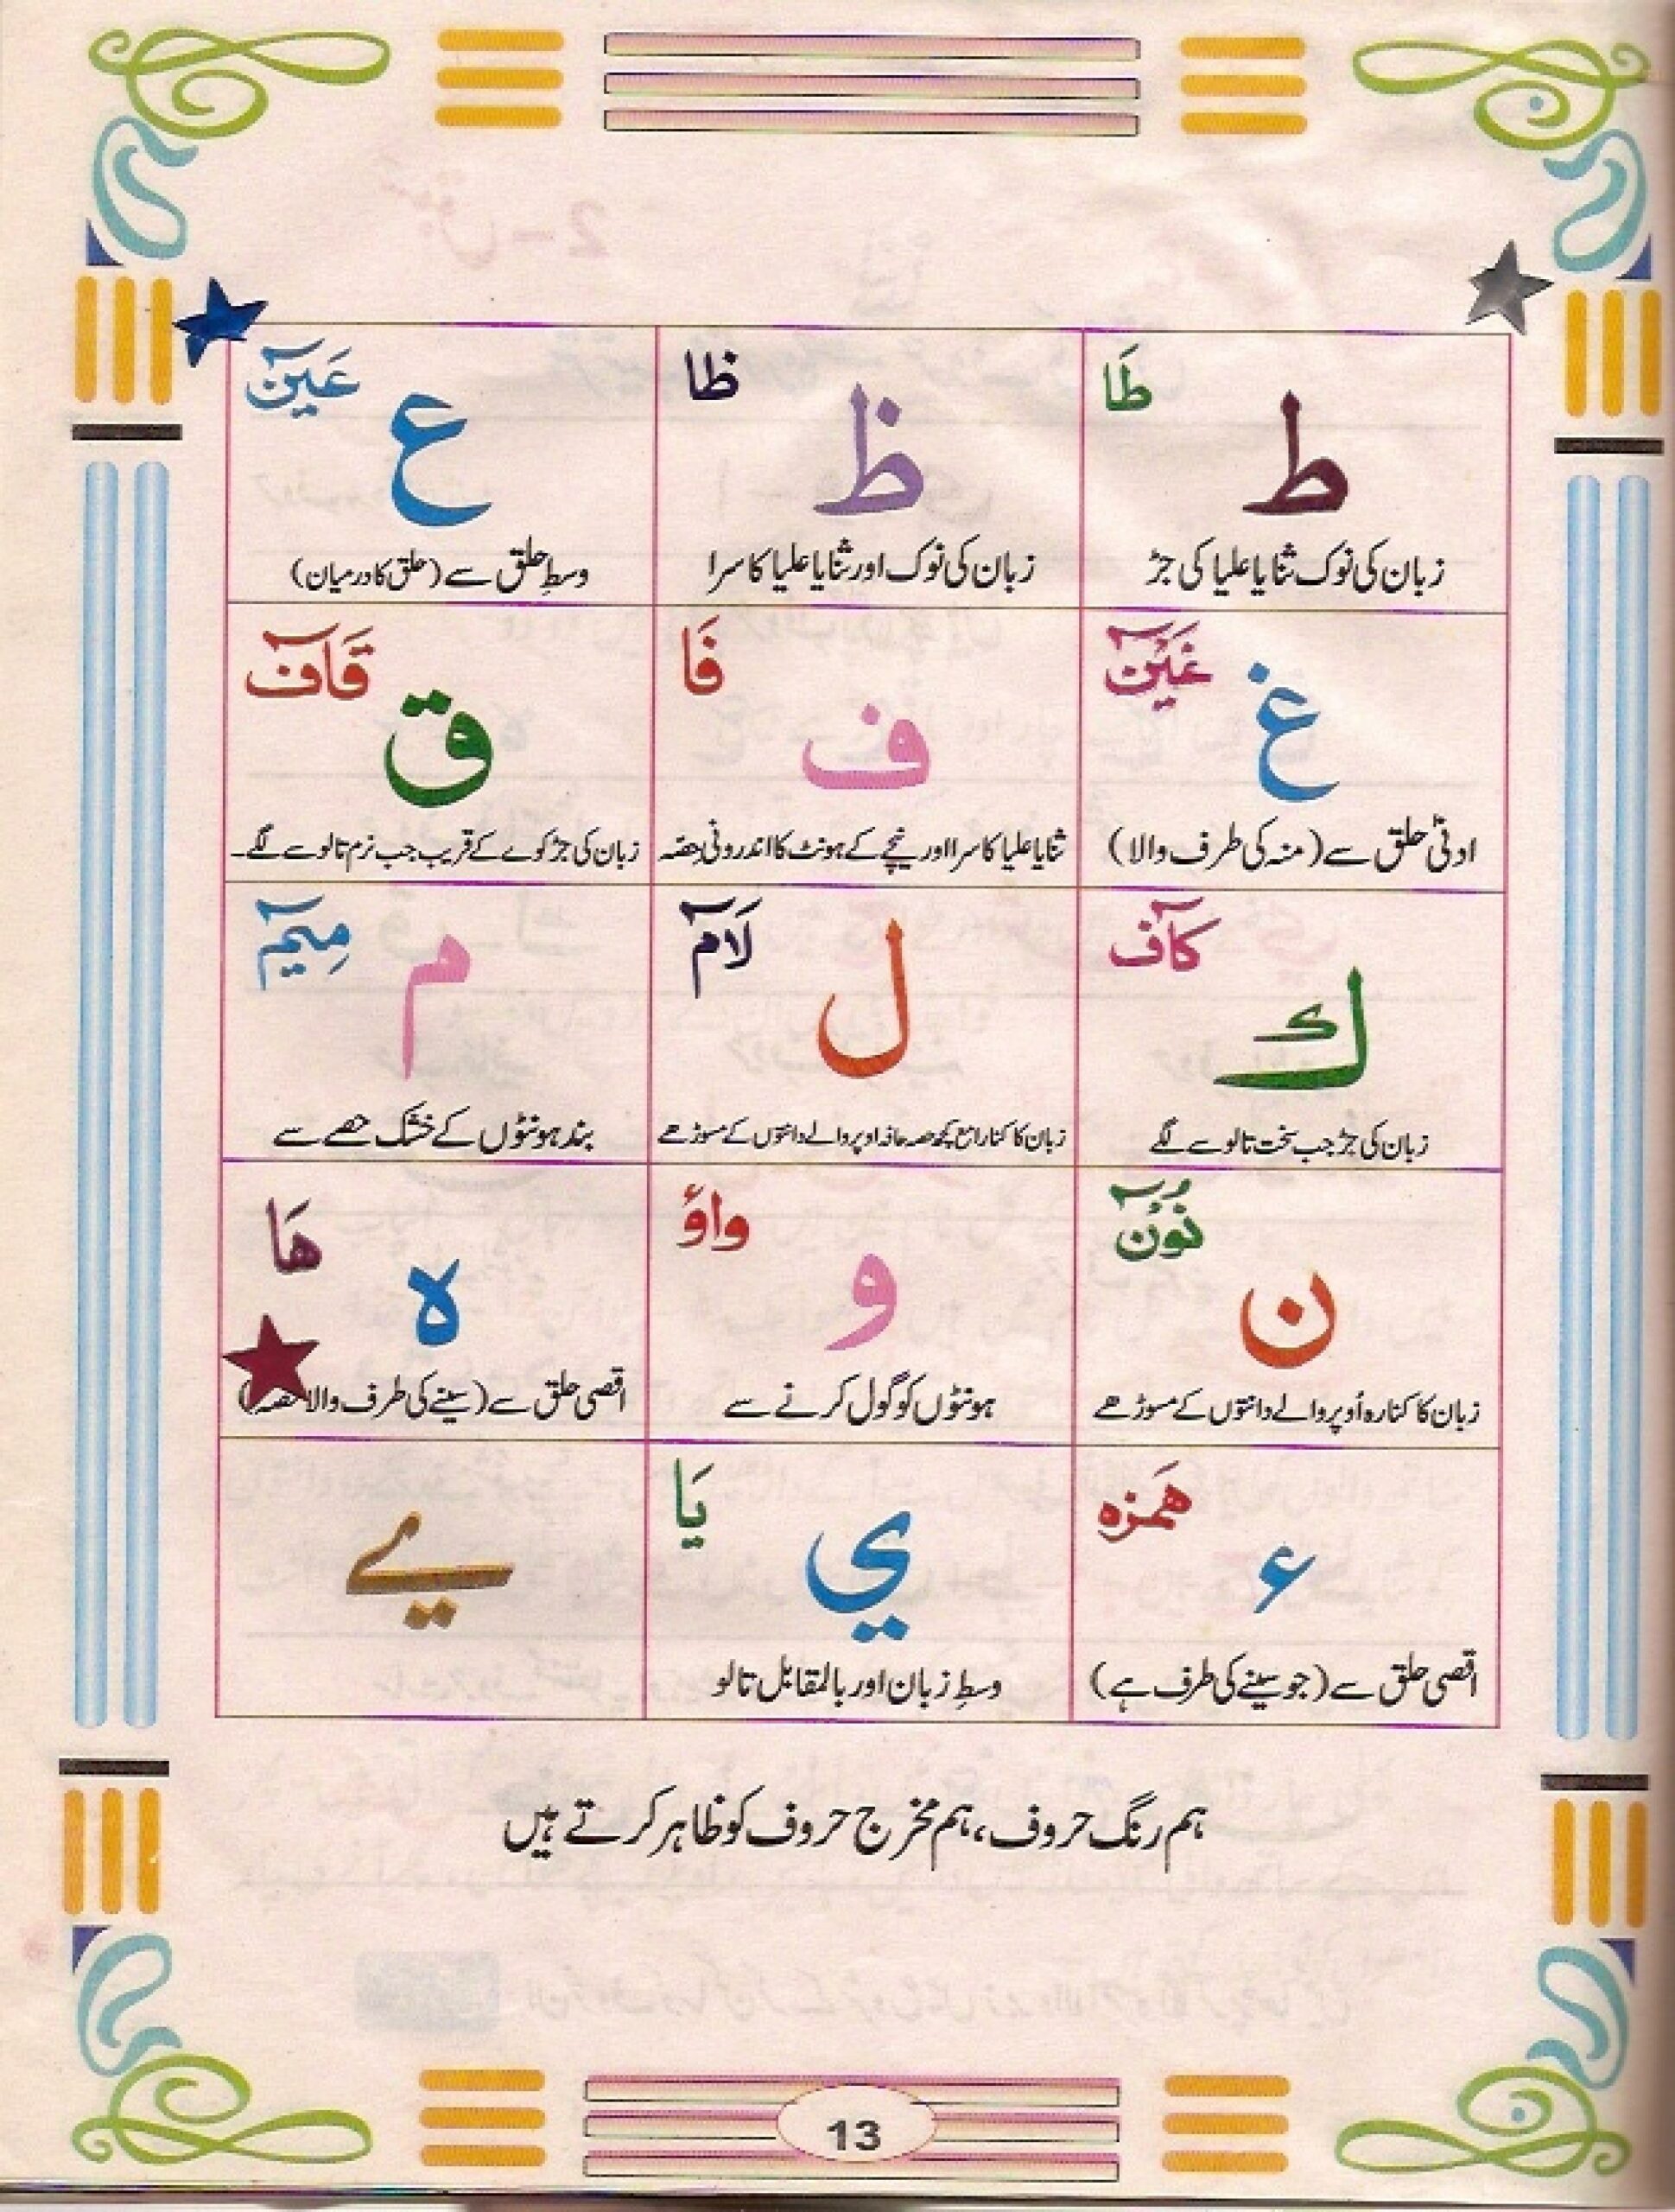 طَا
ط
زبان کی نوک ثنایا علیا کی جڑ
ظا
ظ
زبان کی نوک اور ثنایا علیا کا سرا
عَيۡنٓ
ع
وسطِ حلق سے (حلق کا درمیان)
غَيۡنٓ
غ
ادنیٰ حلق سے (منہ کی طرف والا)
فَا
ف
ثنایا علیا کا سرا اور نیچے کے ہونٹ کا اندرونی حصّہ
قَافٓ
ق
زبان کی جڑ کوے کے قریب جب نرم تالو سے لگے۔
كَآف
ك
زبان کی جڑ جب سخت تالو سے لگے
لَآمٓ
ل
زبان کا کنارا مع کچھ حصہ حافہ اوپر والے دانتوں کے مسوڑھے
مِيۡمٓ
م
بند ہونٹوں کے خشک حصے سے
نُوۡنٓ
ن
زبان کا کنارہ اُوپر والے دانتوں کے مسوڑھے
واؤ
و
ہونٹوں کو گول کرنے سے
هَا
ہ
اقصی حلق سے (سینے کی طرف والا حصہ)
هَمزه
ء
اقصی حلق سے (جو سینے کی طرف ہے)
يَا
ي
وسطِ زبان اور بالمقابل تالو
ے
ہم رنگ حروف، ہم مخرج حروف کو ظاہر کرتے ہیں
13